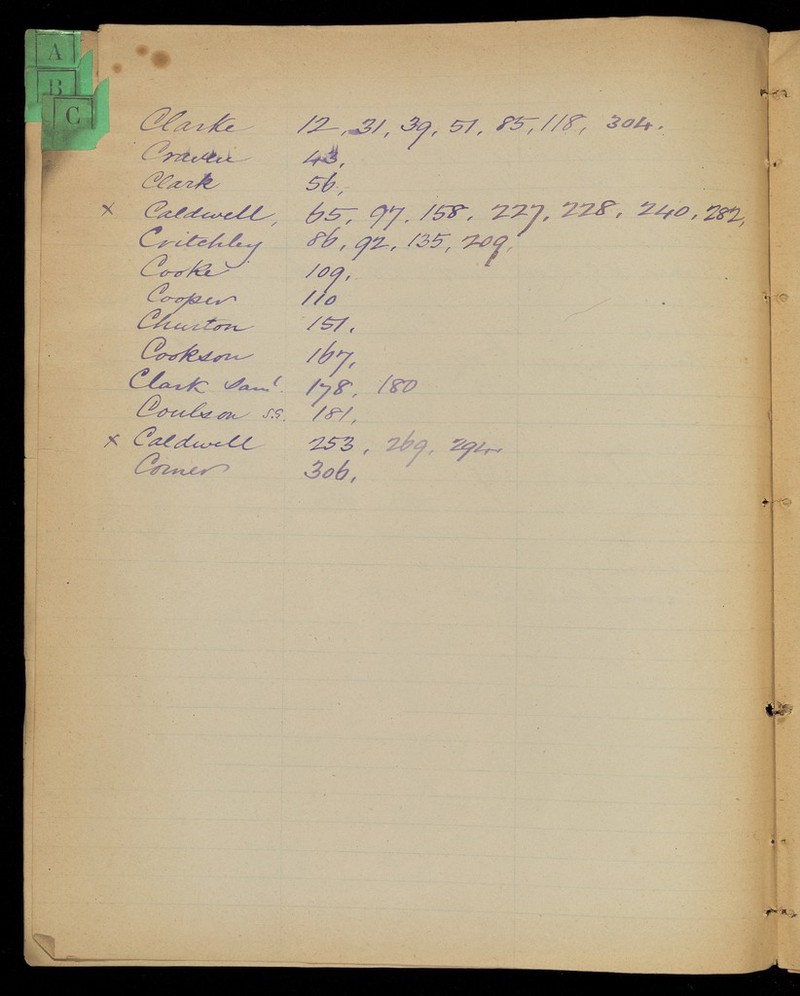 A
B
C
Clarke 12, 31, 39, 51, 85, 118, 304.
Craven 43,
Clark 56,
x Caldwell, 65, 97, 158, 227, 228, 240, 282,
Critchley 86, 92, 135, 209,
Cooke 109,
Cooper 110
Churton 151,
Cookson 167,
Clark Saml. 178, 180
Coulson S.S. 181,
x Caldwell 253, 269, 294,
Corner 306,